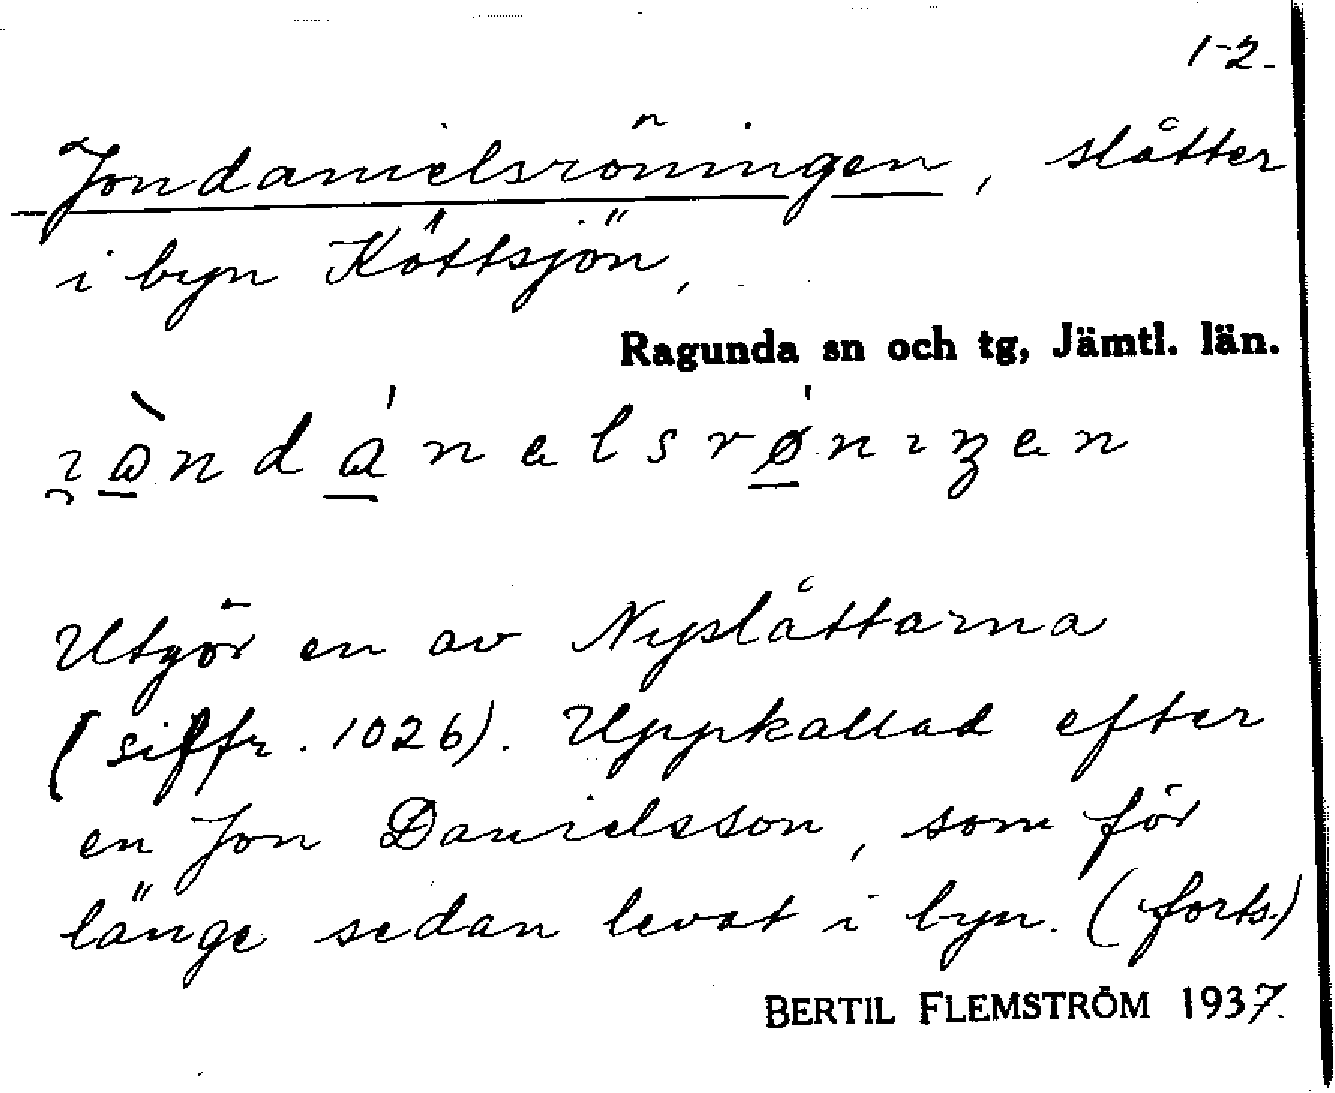 1-2.
Jondanielsröningen, slåtter
i byn Köttsjön,
Ragunda sn och tg, Jämtl. län.
Utgör en av Nyslåttarna
(siffr. 1026). Uppkallad efter
en Jon Danielsson, som för
länge sedan levat i byn. (forts.)
BERTIL FLEMSTRÖM 1937.